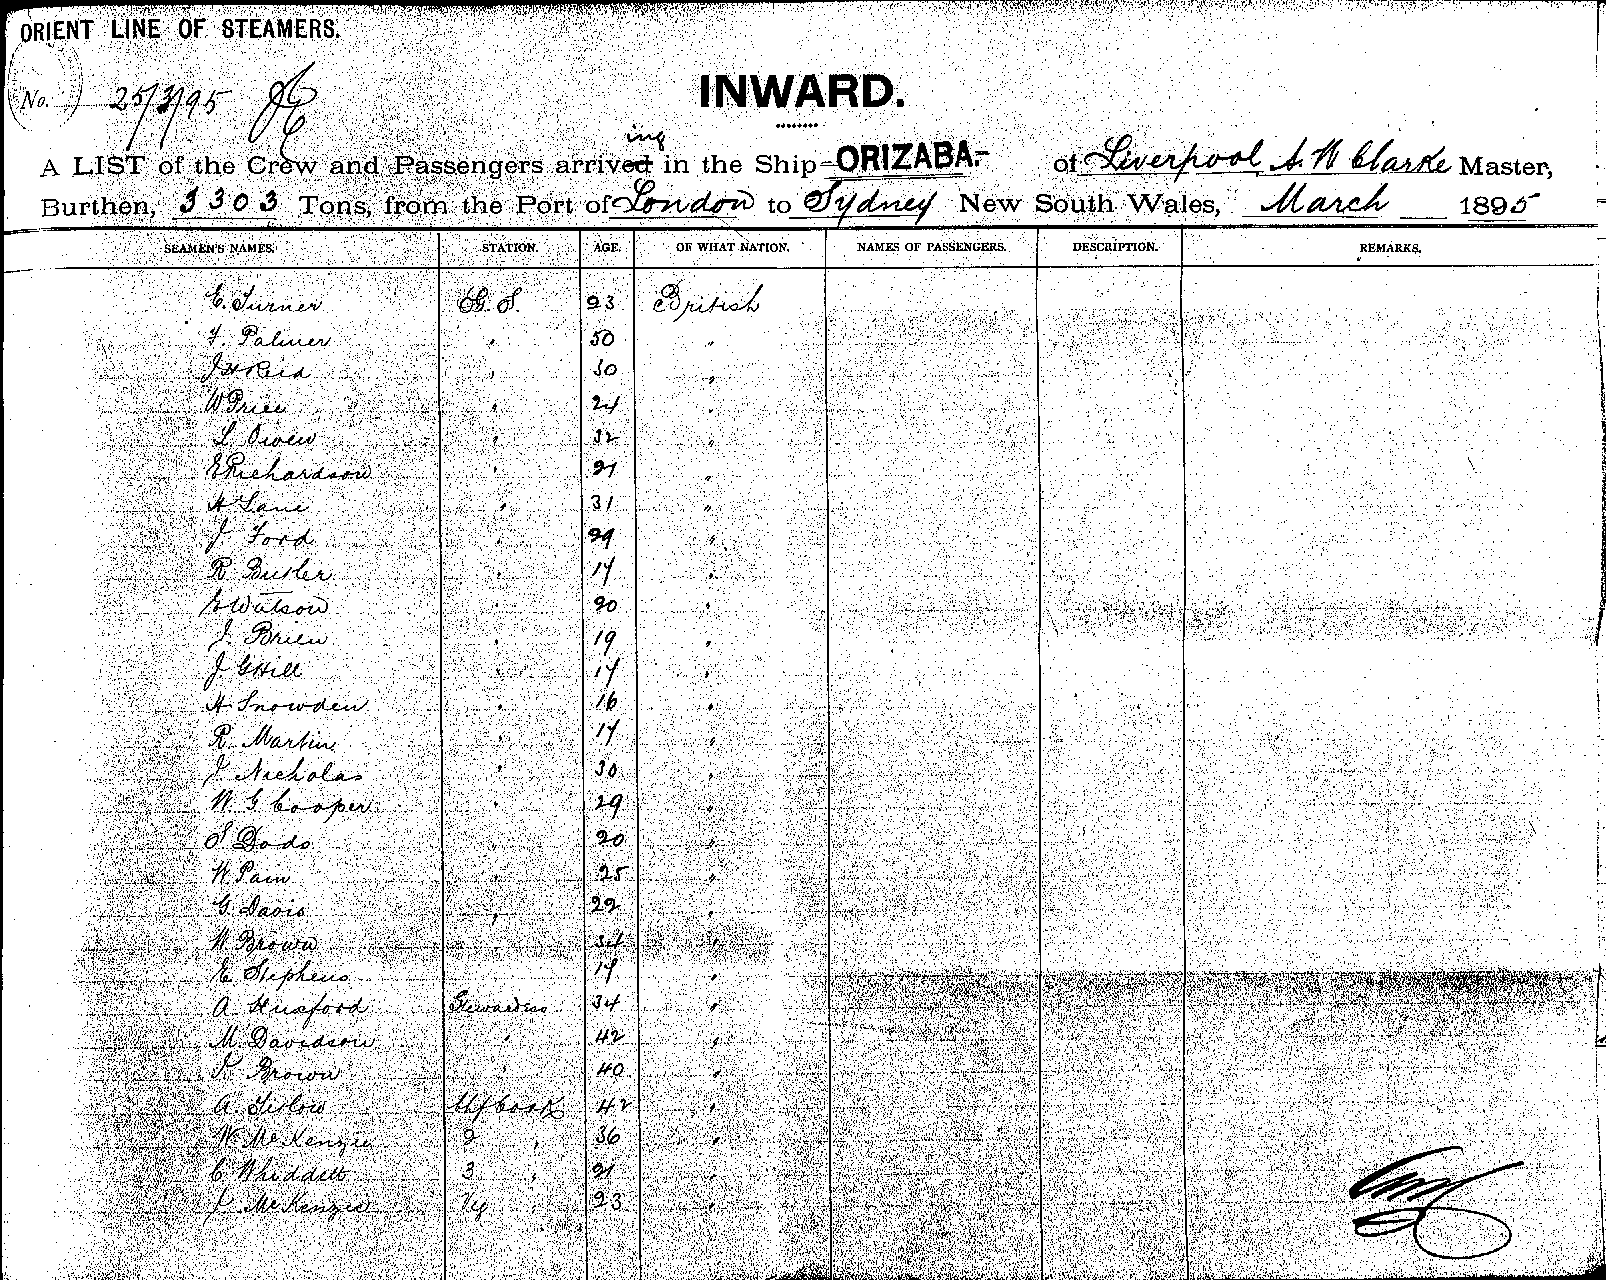 ORIENT LINE OF STEAMERS.
No. 25/3/95
INWARD.
ing
A LIST of the Crew and Passengers arrived in the Ship ORIZABA. of Liverpool A. N Clarke Master,
Burthen, 3303 Tons, from the Port of London to Sydney New South Wales, March 1895
SEAMEN'S NAMES. STATION. AGE. OF WHAT NATION. NAMES OF PASSENGERS. DESCRIPTION. REMARKS.
E. Turner G. S. 23 British
F. Palmer " 50 "
J H Reid " 30 "
W Price " 24 "
L Owen " 32 "
E Richardson " 21 "
H Lane " 31 "
J Ford " 29 "
R Butler " 17 "
E Watson " 20 "
J. Brien " 19 "
J G Hill " 17 "
H. Snowden " 16 "
R. Martin " 17 "
J Nicholas " 30 "
W. G Cooper " 29 "
S Dods " 20 "
W. Pain " 25 "
G. Davis " 22 "
W Brown " 34 "
E Stephens 17 "
A Huxford Stewardess 34 "
M. Davidson " 42 "
K Brown " 40 "
A. 42 "
W McKenzie 2 " 36 "
C Whiddett 3 " 21 "
J McKenzie Vg " 23 "